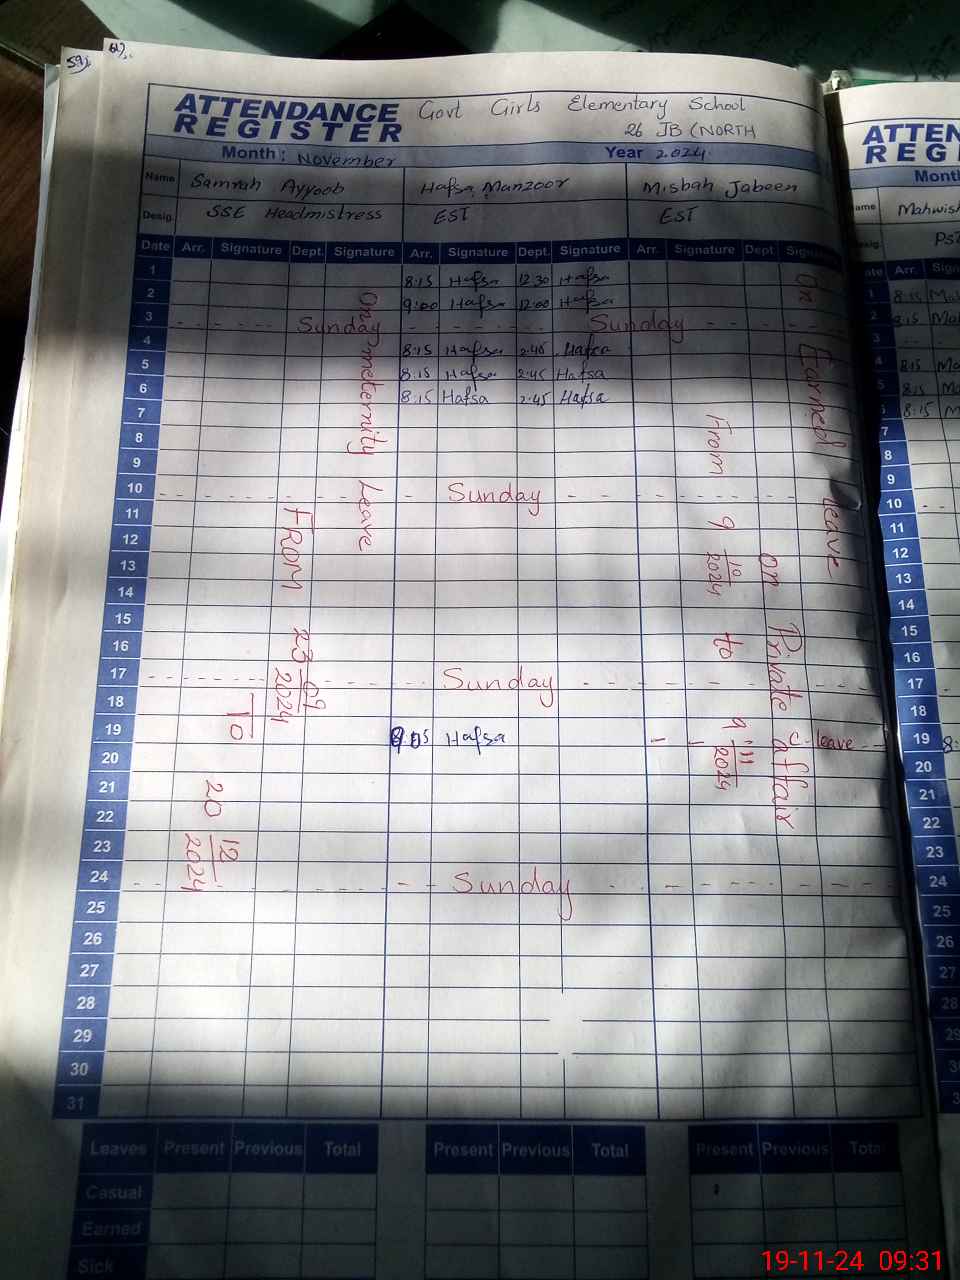 59).
61).
ATTENDANCE REGISTER
Govt Girls Elementary School
26 JB (NORTH
Month: November Year 2024
Name Samrah Ayyoob Hafsa Manzoor Misbah Jabeen
Desig. SSE Headmistress EST EST
Date Arr. Signature Dept. Signature Arr. Signature Dept. Signature Arr. Signature Dept Signature
1 8:15 Hafsa 12:30 Hafsa
2 9:00 Hafsa 12:00 Hafsa
3 Sunday Sunday
4 8:15 Hafsa 2:45 Hafsa
5 8:15 Hafsa 2:45 Hafsa
6 8:15 Hafsa 2:45 Hafsa
7
8
9
10 Sunday
11
12
13
14
15
16
17 Sunday
18
19 Hafsa C-leave
20
21
22
23
24 Sunday
25
26
27
28
29
30
31
On meternity Leave
FROM 23 09 2024
TO
20 12 2024
On Earned leave
on Private affair
From 9 10 2024 to 9 11 2024
Leaves Present Previous Total Present Previous Total Present Previous Total
Casual
Earned
Sick
ATTEN
REGI
Month
ame Mahwish
Desig. PST
ate Arr. Sign
1 8:15
2 8:15
3
4 8:15
5 8:15
6 8:15
7
8
9
10
11
12
13
14
15
16
17
18
19
20
21
22
23
24
25
26
27
28
29
19-11-24 09:31